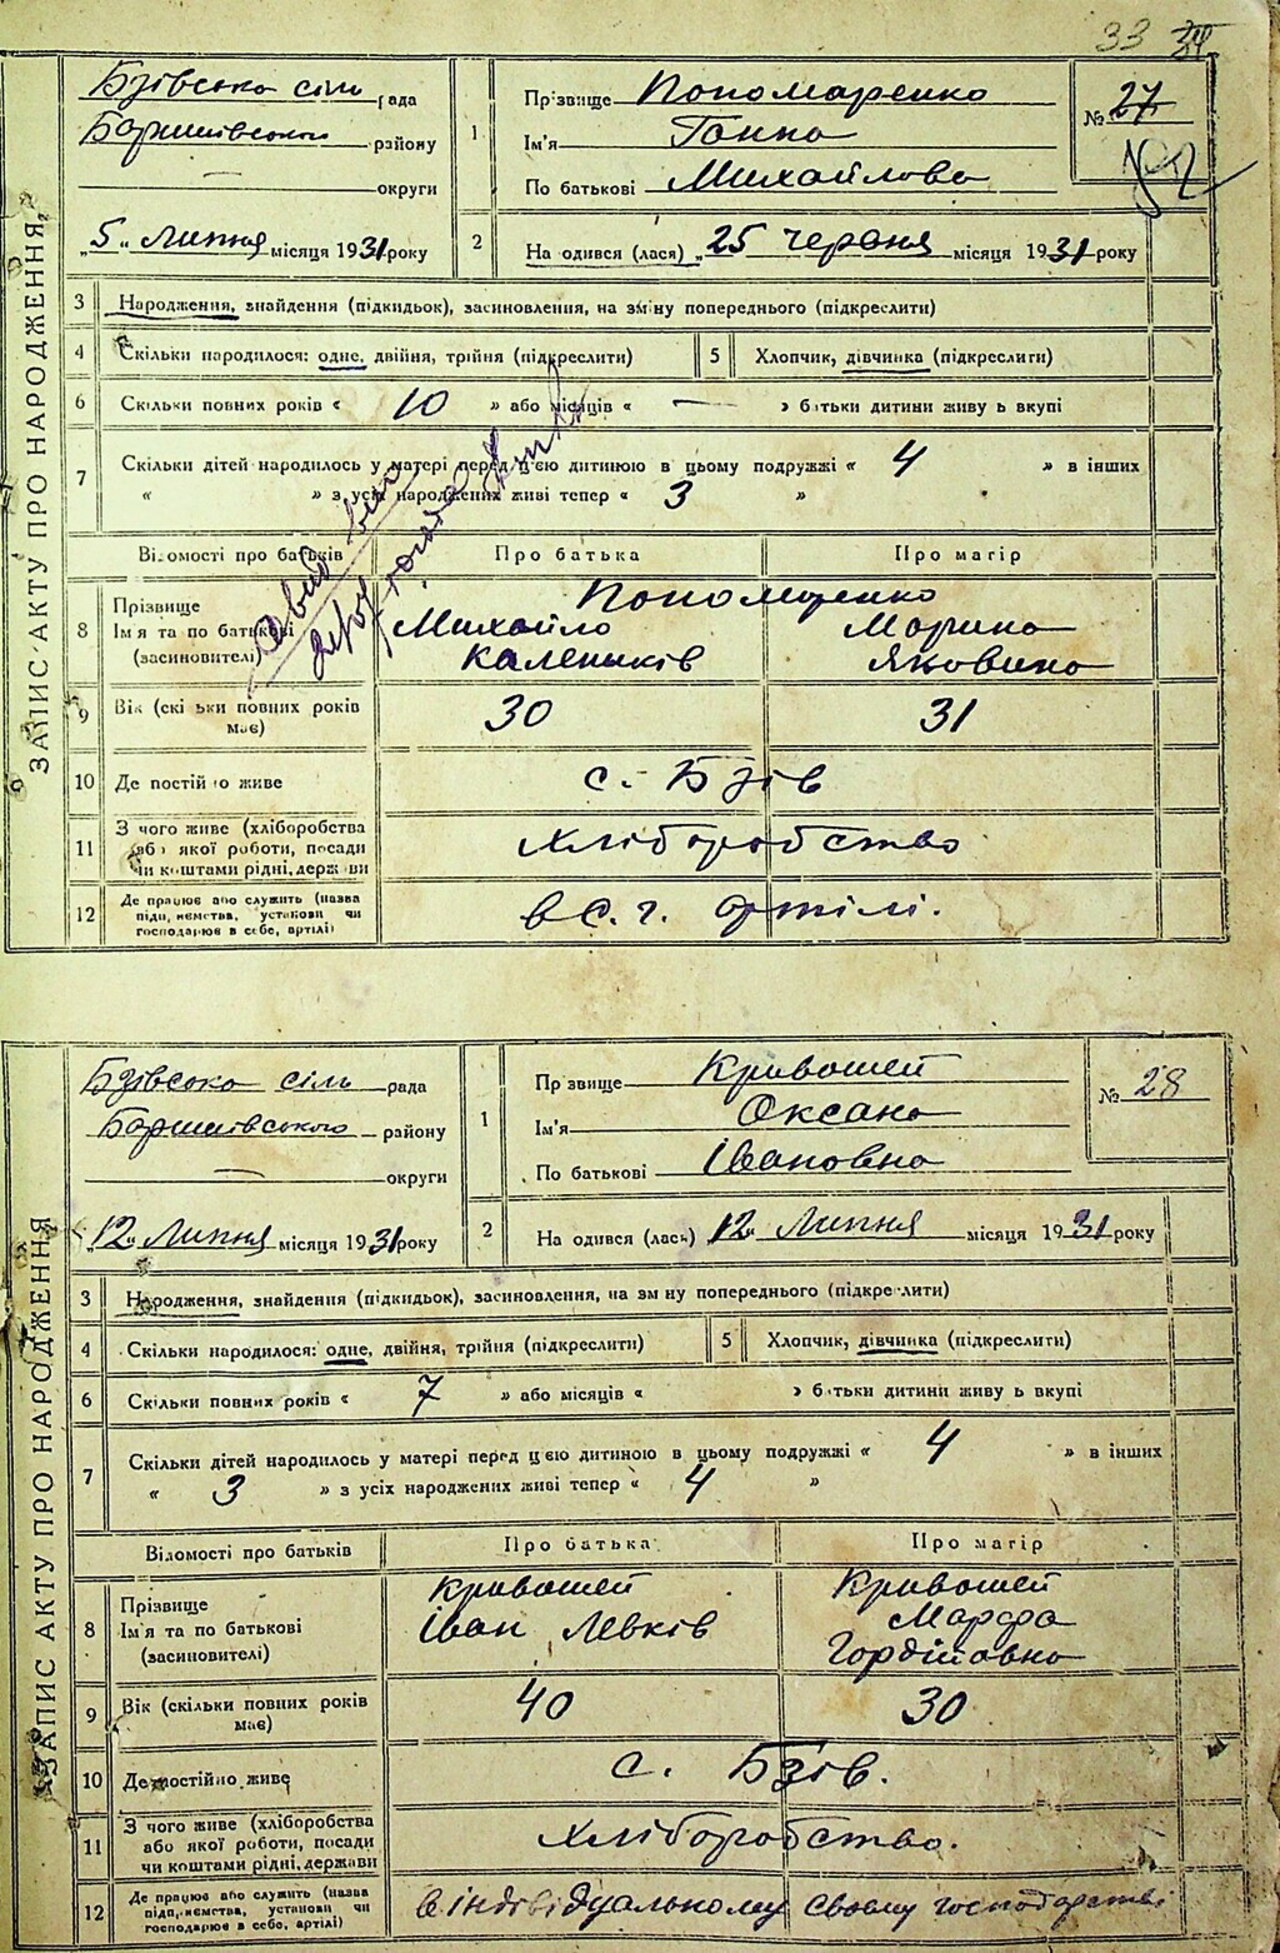 33
ЗАПИС АКТУ ПРО НАРОДЖЕННЯ
Бзівська сіль рада
Баришівського району
— округи
„5" Липня місяця 1931 року
1 Прізвище Пономаренко
Ім'я Ганна
По батькові Михайлова
№ 27
2 На одився (лася) „25 червня місяця 1931 року
3 Народження, знайдення (підкидьок), засиновлення, на зміну попереднього (підкреслити)
4 Скільки народилося: одне, двійня, трійня (підкреслити) 5 Хлопчик, дівчинка (підкреслити)
6 Скільки повних років « 10 » або місяців « — » батьки дитини живуть вкупі
7 Скільки дітей народилось у матері перед цією дитиною в цьому подружжі « 4 » в інших
« » з усіх народжених живі тепер « 3 »
Відомості про батьків Про батька Про матір
8 Прізвище Ім'я та по батькові (засиновителі)
Пономаренко
Михайло Марина
Калеників Яковина
9 Вік (скільки повних років має) 30 31
10 Де постійно живе с. Бзів
11 З чого живе (хліборобства або якої роботи, посади чи коштами рідні, держави Хліборобство
12 Де працює або служить (назва підприємства, установи чи господарює в себе, артілі) в с. г. артілі.
ЗАПИС АКТУ ПРО НАРОДЖЕННЯ
Бзівсока сіль рада
Баришівського району
— округи
„12" Липня місяця 1931 року
1 Прізвище Кривошей
Ім'я Оксана
По батькові Івановна
№ 28
2 На одився (лась) „12" Липня місяця 1931 року
3 Народження, знайдення (підкидьок), засиновлення, на зміну попереднього (підкреслити)
4 Скільки народилося: одне, двійня, трійня (підкреслити) 5 Хлопчик, дівчинка (підкреслити)
6 Скільки повних років « 7 » або місяців « » батьки дитини живуть вкупі
7 Скільки дітей народилось у матері перед цією дитиною в цьому подружжі « 4 » в інших
« 3 » з усіх народжених живі тепер « 4 »
Відомості про батьків Про батька Про матір
8 Прізвище Ім'я та по батькові (засиновителі)
Кривошей Кривошей
Іван Левків Марфа
Гордійовна
9 Вік (скільки повних років має) 40 30
10 Де постійно живе с. Бзів.
11 З чого живе (хліборобства або якої роботи, посади чи коштами рідні, держави Хліборобство.
12 Де працює або служить (назва підприємства, установи чи господарює в себе, артілі) в індівідуальному своему господарстві